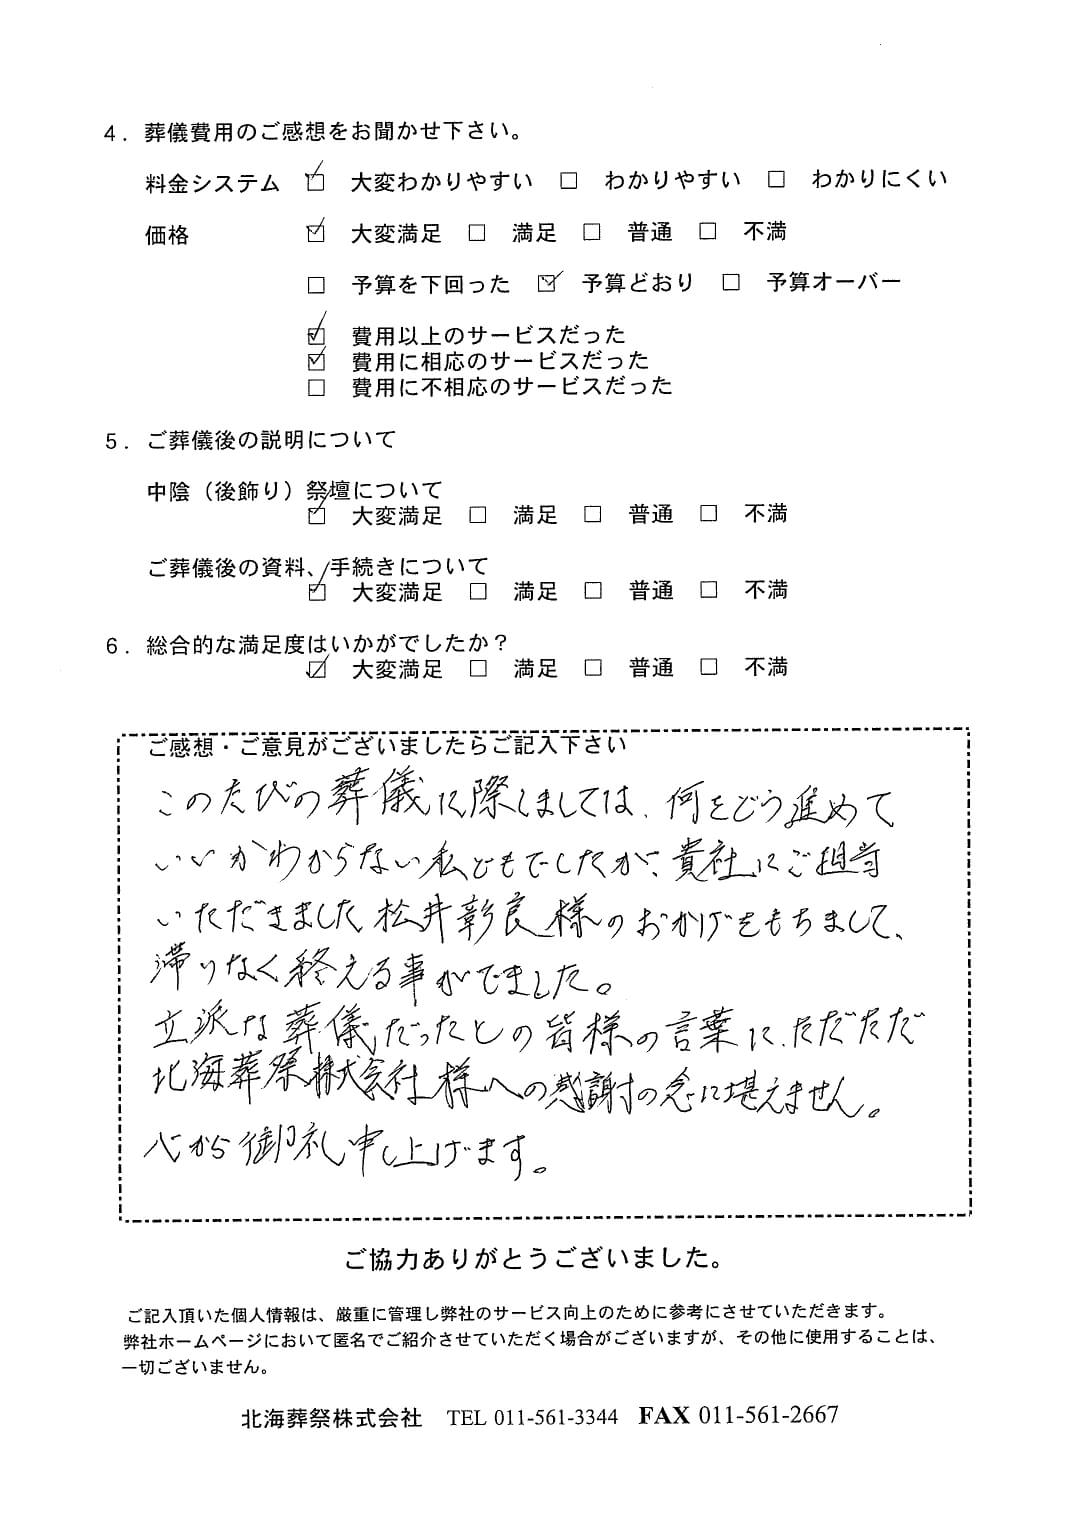 4．葬儀費用のご感想をお聞かせ下さい。
料金システム ☑ 大変わかりやすい □ わかりやすい □ わかりにくい
価格 ☑ 大変満足 □ 満足 □ 普通 □ 不満
□ 予算を下回った ☑ 予算どおり □ 予算オーバー
☑ 費用以上のサービスだった
☑ 費用に相応のサービスだった
□ 費用に不相応のサービスだった
5．ご葬儀後の説明について
中陰（後飾り）祭壇について
☑ 大変満足 □ 満足 □ 普通 □ 不満
ご葬儀後の資料、手続きについて
☑ 大変満足 □ 満足 □ 普通 □ 不満
6．総合的な満足度はいかがでしたか？
☑ 大変満足 □ 満足 □ 普通 □ 不満
ご感想・ご意見がございましたらご記入下さい
このたびの葬儀に際しましては、何をどう進めて
いいかわからない私どもでしたが、貴社にご担当
いただきました松井彰良様のおかげをもちまして、
滞りなく終える事がでました。
立派な葬儀だったとの皆様の言葉に、ただただ
北海葬祭株式会社様への感謝の念に堪えません。
心から御礼申し上げます。
ご協力ありがとうございました。
ご記入頂いた個人情報は、厳重に管理し弊社のサービス向上のために参考にさせていただきます。
弊社ホームページにおいて匿名でご紹介させていただく場合がございますが、その他に使用することは、
一切ございません。
北海葬祭株式会社 TEL 011-561-3344 FAX 011-561-2667